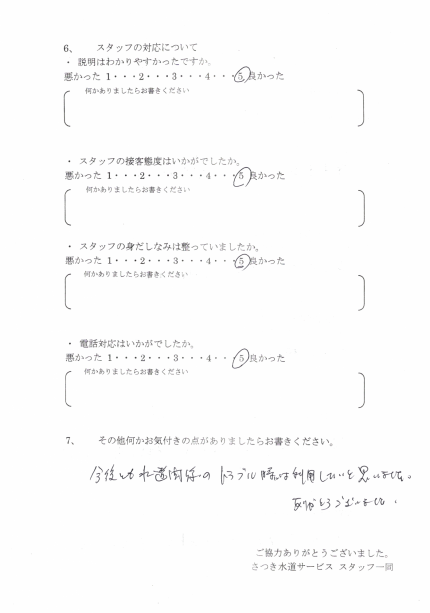 6、 スタッフの対応について
・ 説明はわかりやすかったですか。
悪かった 1・・・2・・・3・・・4・・・5 良かった
何かありましたらお書きください
・ スタッフの接客態度はいかがでしたか。
悪かった 1・・・2・・・3・・・4・・・5 良かった
何かありましたらお書きください
・ スタッフの身だしなみは整っていましたか。
悪かった 1・・・2・・・3・・・4・・・5 良かった
何かありましたらお書きください
・ 電話対応はいかがでしたか。
悪かった 1・・・2・・・3・・・4・・・5 良かった
何かありましたらお書きください
7、 その他何かお気付きの点がありましたらお書きください。
今後とも水道関係のトラブル時は利用したいと思いました。
ありがとうございました。
ご協力ありがとうございました。
さつき水道サービス スタッフ一同